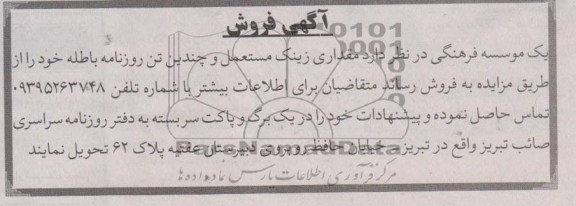 آگهی فروش
یک موسسه فرهنگی در نظر دارد مقداری زینک مستعمل و چندین تن روزنامه باطله خود را از
طریق مزایده به فروش رساند متقاضیان برای اطلاعات بیشتر با شماره تلفن ۰۹۳۹۵۲۶۳۷۴۸
تماس حاصل نموده و پیشنهادات خود را در یک برگ و پاکت سر بسته به دفتر روزنامه سراسری
صائب تبریز واقع در تبریز ـ خیابان حافظ روبروی دبیرستان عفتیه پلاک ۶۲ تحویل نمایند
مرکز فرآوری اطلاعات پارس نماد داده ها